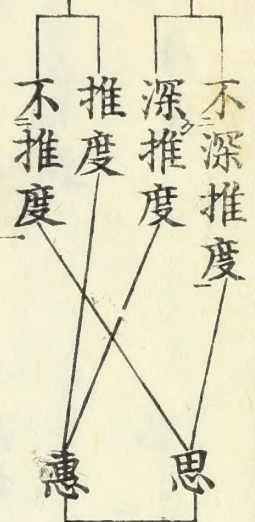 不深推度
深推度
推度
不推度
思
惠